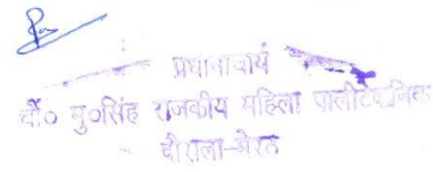 प्रधानाचार्य
चौ० मु०सिंह राजकीय महिला पालीटेक्निक
दौराला-मेरठ